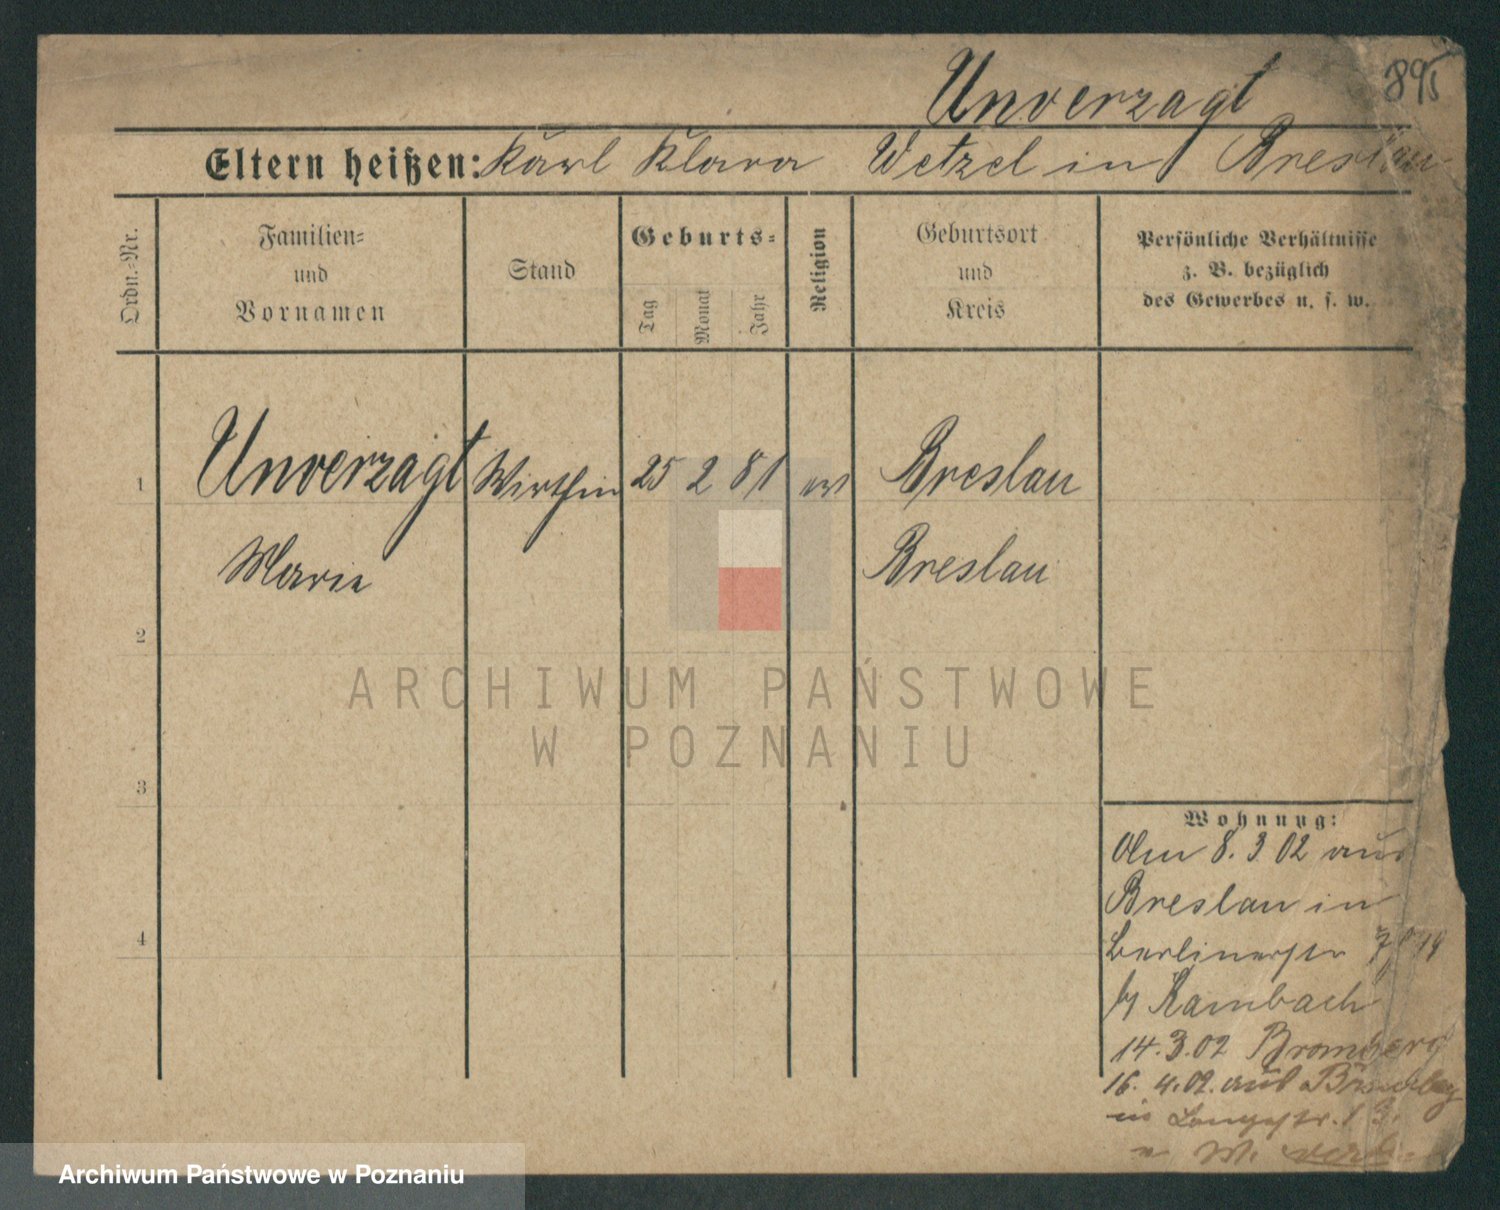 Unverzagt
895
Eltern heißen: Karl Klara Wetzel in Breslau
Ordn.-Nr.
Familien-
und
Vornamen
Stand
Geburts-
Tag
Monat
Jahr
Religion
Geburtsort
und
Kreis
Persönliche Verhältnisse
z. B. bezüglich
des Gewerbes u. s. w.
1 Unverzagt Wirthin 25 2 81 ev Breslau
Marie Breslau
2
3
4
ARCHIWUM PAŃSTWOWE
W POZNANIU
Wohnung:
Am 8. 3 02 aus
Breslau in
Berlinerstr
Kambach
14.3.02 Bromberg
16. 4.02. aus
in Langestr. 13.
Archiwum Państwowe w Poznaniu